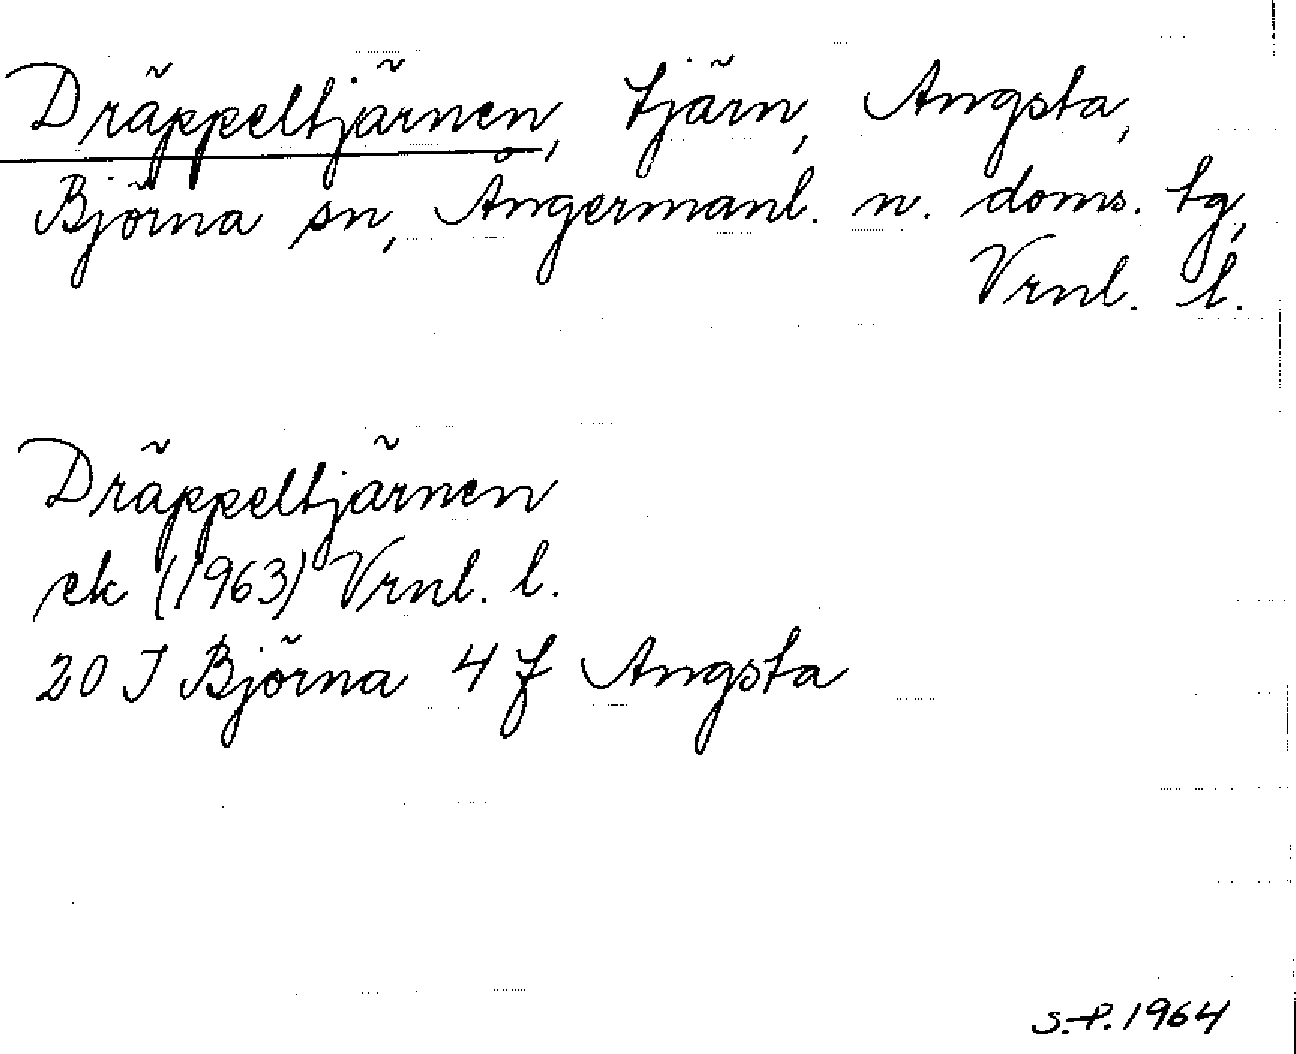 Dräppeltjärnen, tjärn, Angsta,
Björna sn, Ångermanl. n. doms. tg,
Vrnl. l.
Dräppeltjärnen
ek (1963) Vrnl. l.
20 J Björna 4 f Angsta
S.-P. 1964